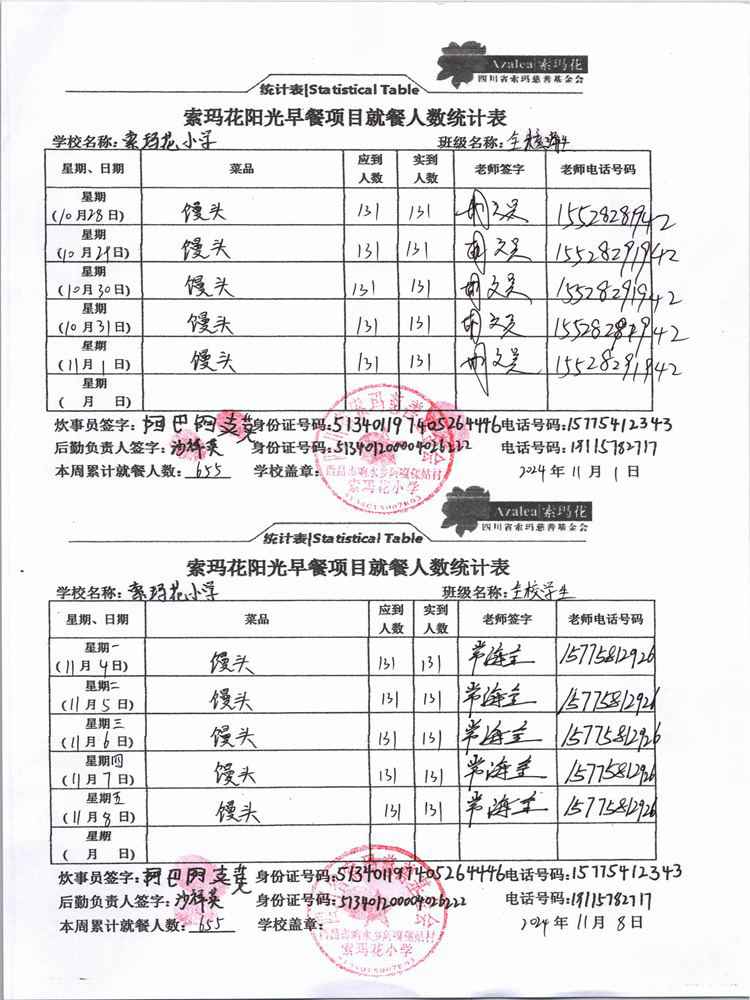 Azalea 索玛花
四川省索玛慈善基金会
统计表|Statistical Table
索玛花阳光早餐项目就餐人数统计表
学校名称：索玛花小学 班级名称：全校学生
星期、日期 菜品 应到人数 实到人数 老师签字 老师电话号码
星期（10月28日） 馒头 131 131 15528281942
星期（10月29日） 馒头 131 131 15528291942
星期（10月30日） 馒头 131 131 15528291942
星期（10月31日） 馒头 131 131 15528281942
星期（11月1日） 馒头 131 131 15528291942
星期（ 月 日）
炊事员签字：阿巴阿支莫 身份证号码：513401197405264446 电话号码：15775412343
后勤负责人签字：沙祥英 身份证号码：513401200004026222 电话号码：18115782717
本周累计就餐人数：655 学校盖章： 2024年11月1日
西昌市响水乡 村
索玛花小学
Azalea 索玛花
四川省索玛慈善基金会
统计表|Statistical Table
索玛花阳光早餐项目就餐人数统计表
学校名称：索玛花小学 班级名称：全校学生
星期、日期 菜品 应到人数 实到人数 老师签字 老师电话号码
星期一（11月4日） 馒头 131 131 15775812926
星期二（11月5日） 馒头 131 131 15775812926
星期三（11月6日） 馒头 131 131 15775812926
星期四（11月7日） 馒头 131 131 15775812926
星期五（11月8日） 馒头 131 131 15775812926
星期（ 月 日）
炊事员签字：阿巴阿支莫 身份证号码：513401197405264446 电话号码：15775412343
后勤负责人签字：沙祥英 身份证号码：513401200004026222 电话号码：18115782717
本周累计就餐人数：655 学校盖章： 2024年11月8日
西昌市响水乡 村
索玛花小学